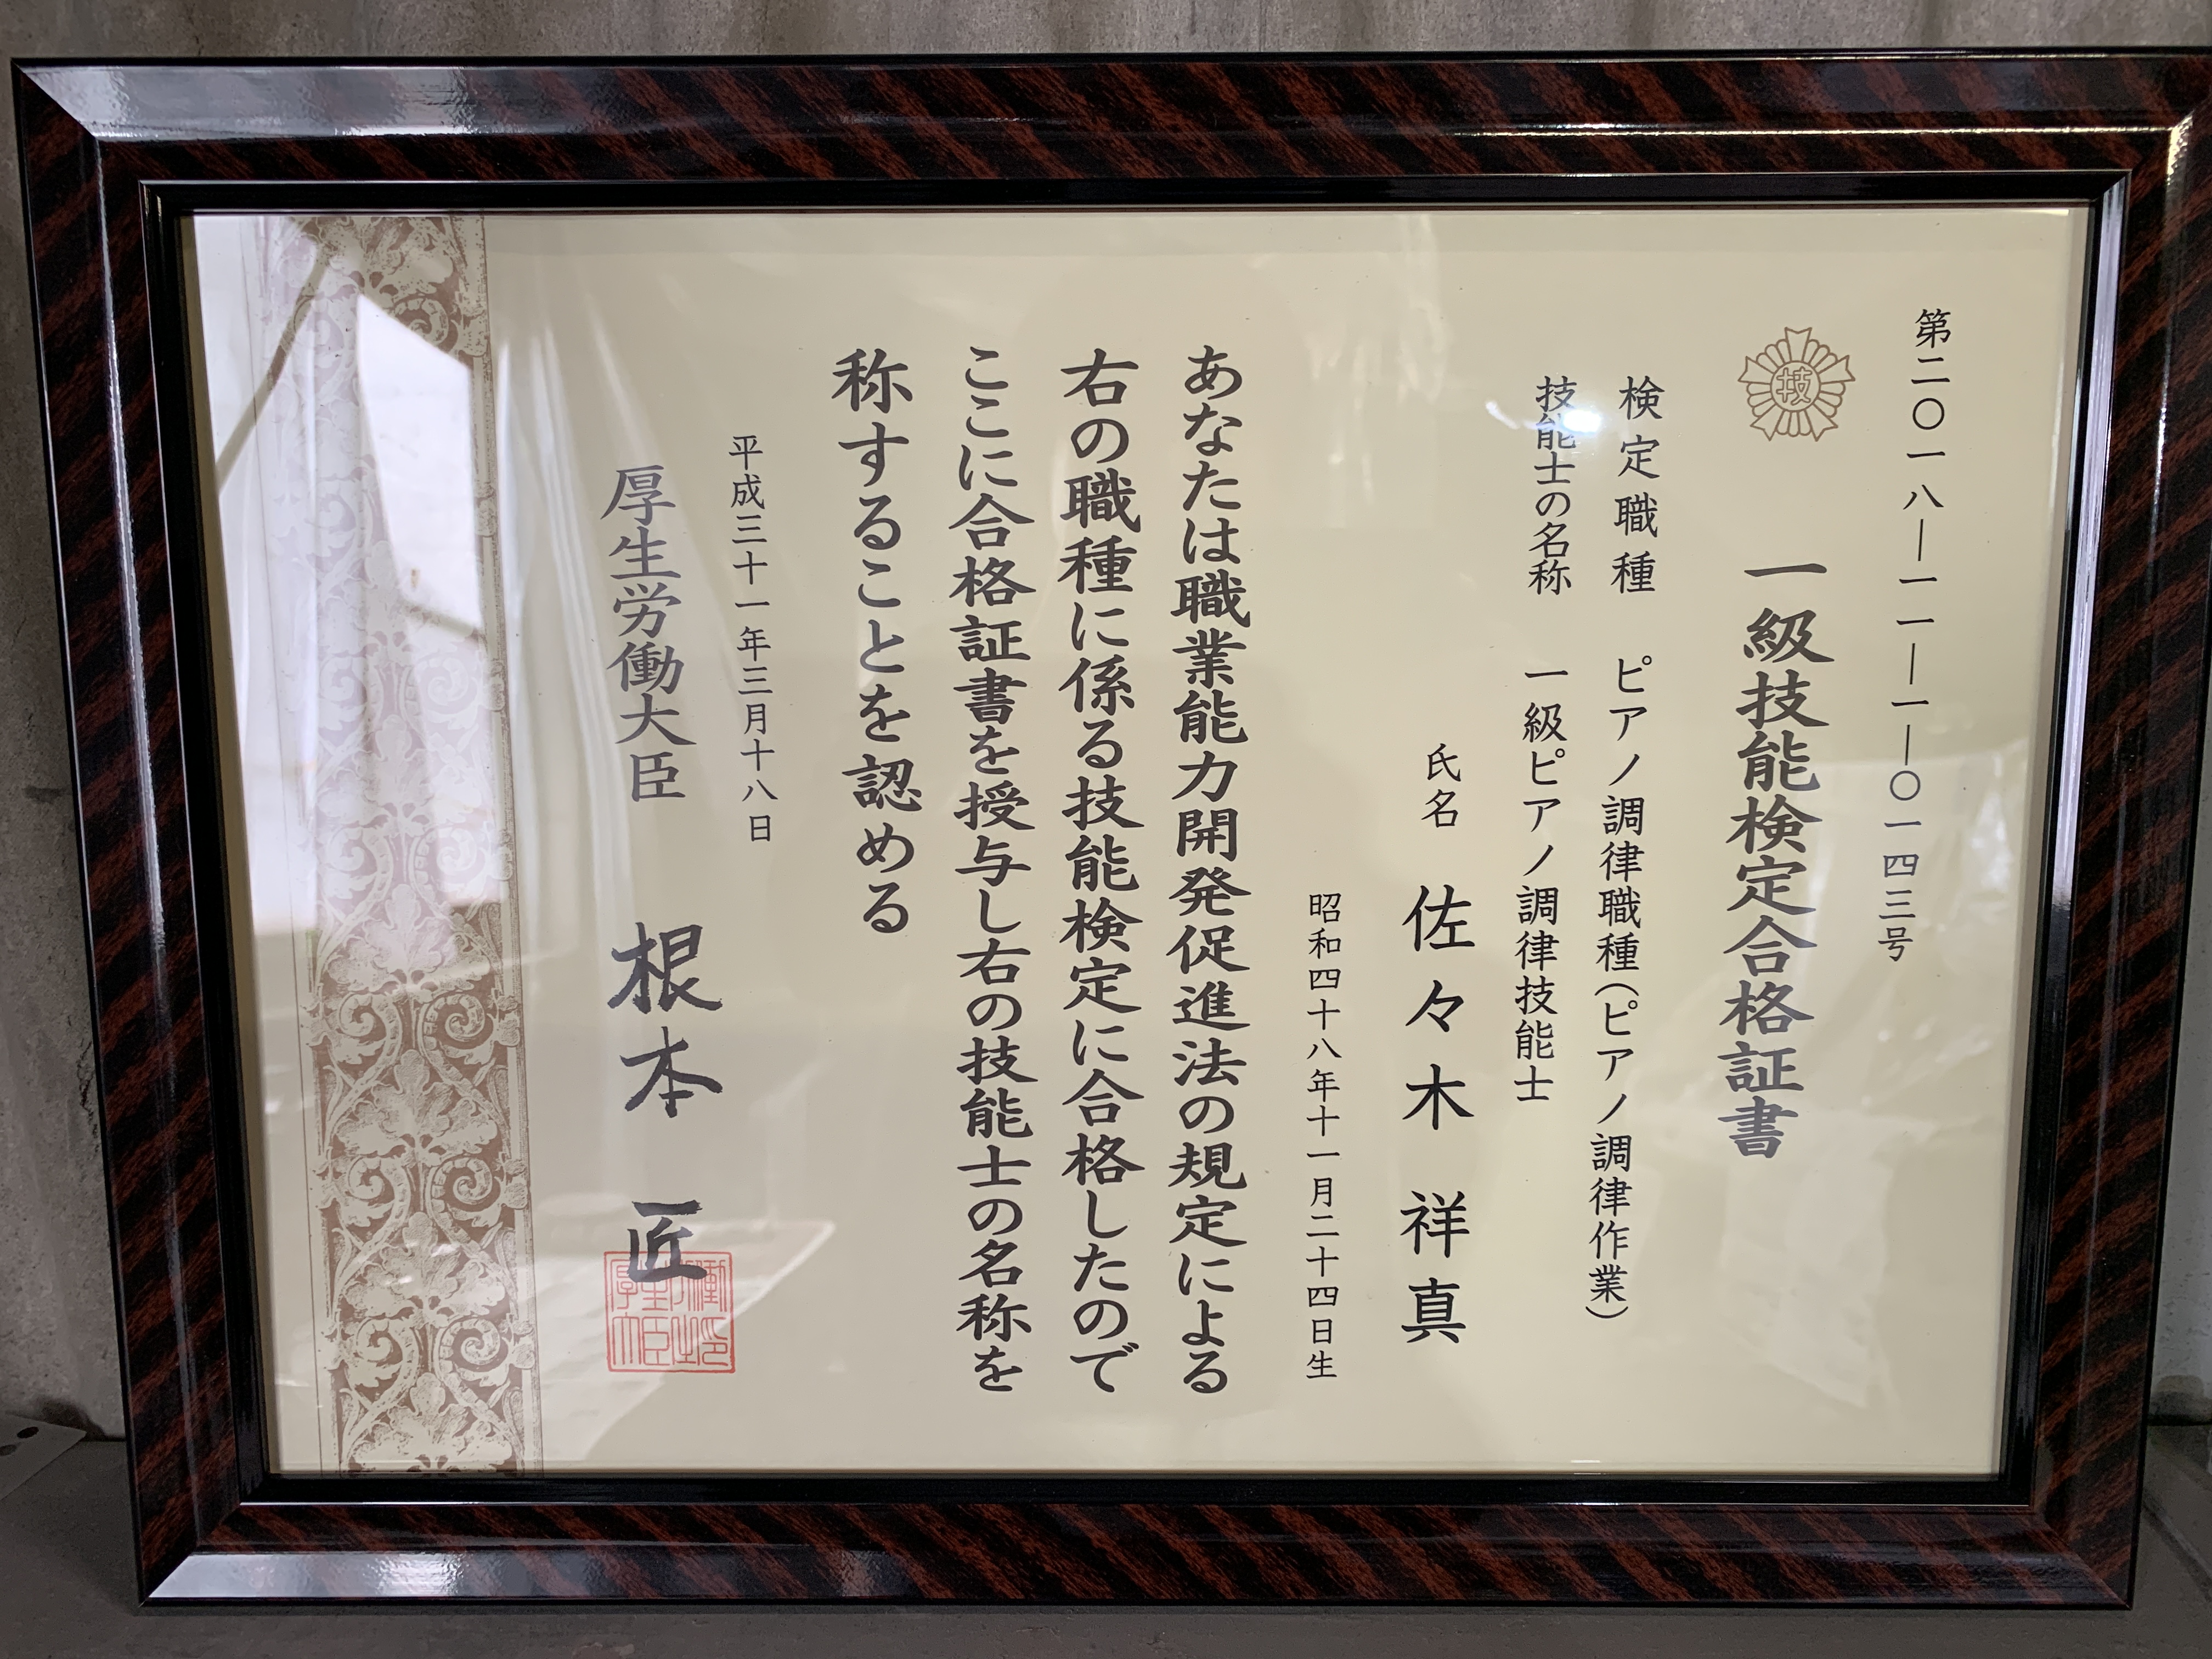 第二〇一八―一一―一―〇一四三号
技
一級技能検定合格証書
検定職種 ピアノ調律職種(ピアノ調律作業)
技能士の名称 一級ピアノ調律技能士
氏名 佐々木祥真
昭和四十八年十一月二十四日生
あなたは職業能力開発促進法の規定による
右の職種に係る技能検定に合格したので
ここに合格証書を授与し右の技能士の名称を
称することを認める
平成三十一年三月十八日
厚生労働大臣 根本 匠